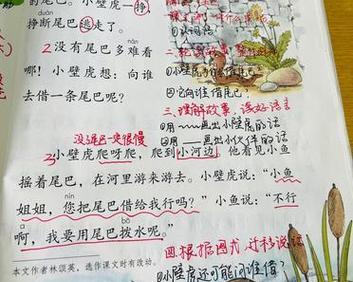 的尾巴。小壁虎一挣
duàn táo
挣断尾巴逃走了。
2没有尾巴多难看
哪!小壁虎想:向谁
去借一条尾巴呢?
3小壁虎爬呀爬,爬到小河边。他看见小鱼
摇着尾巴,在河里游来游去。小壁虎说:“小鱼
nín
姐姐,您把尾巴借给我行吗?”小鱼说:“不行
bō
啊,我要用尾巴拨水呢。”
本文作者林颂英,选作课文时有改动。
三、理解故事,读好语言
①用 画出小壁虎的话
②用 画出小伙伴的话
四.根据图式,迁移说话
①小壁虎还可能问谁借?